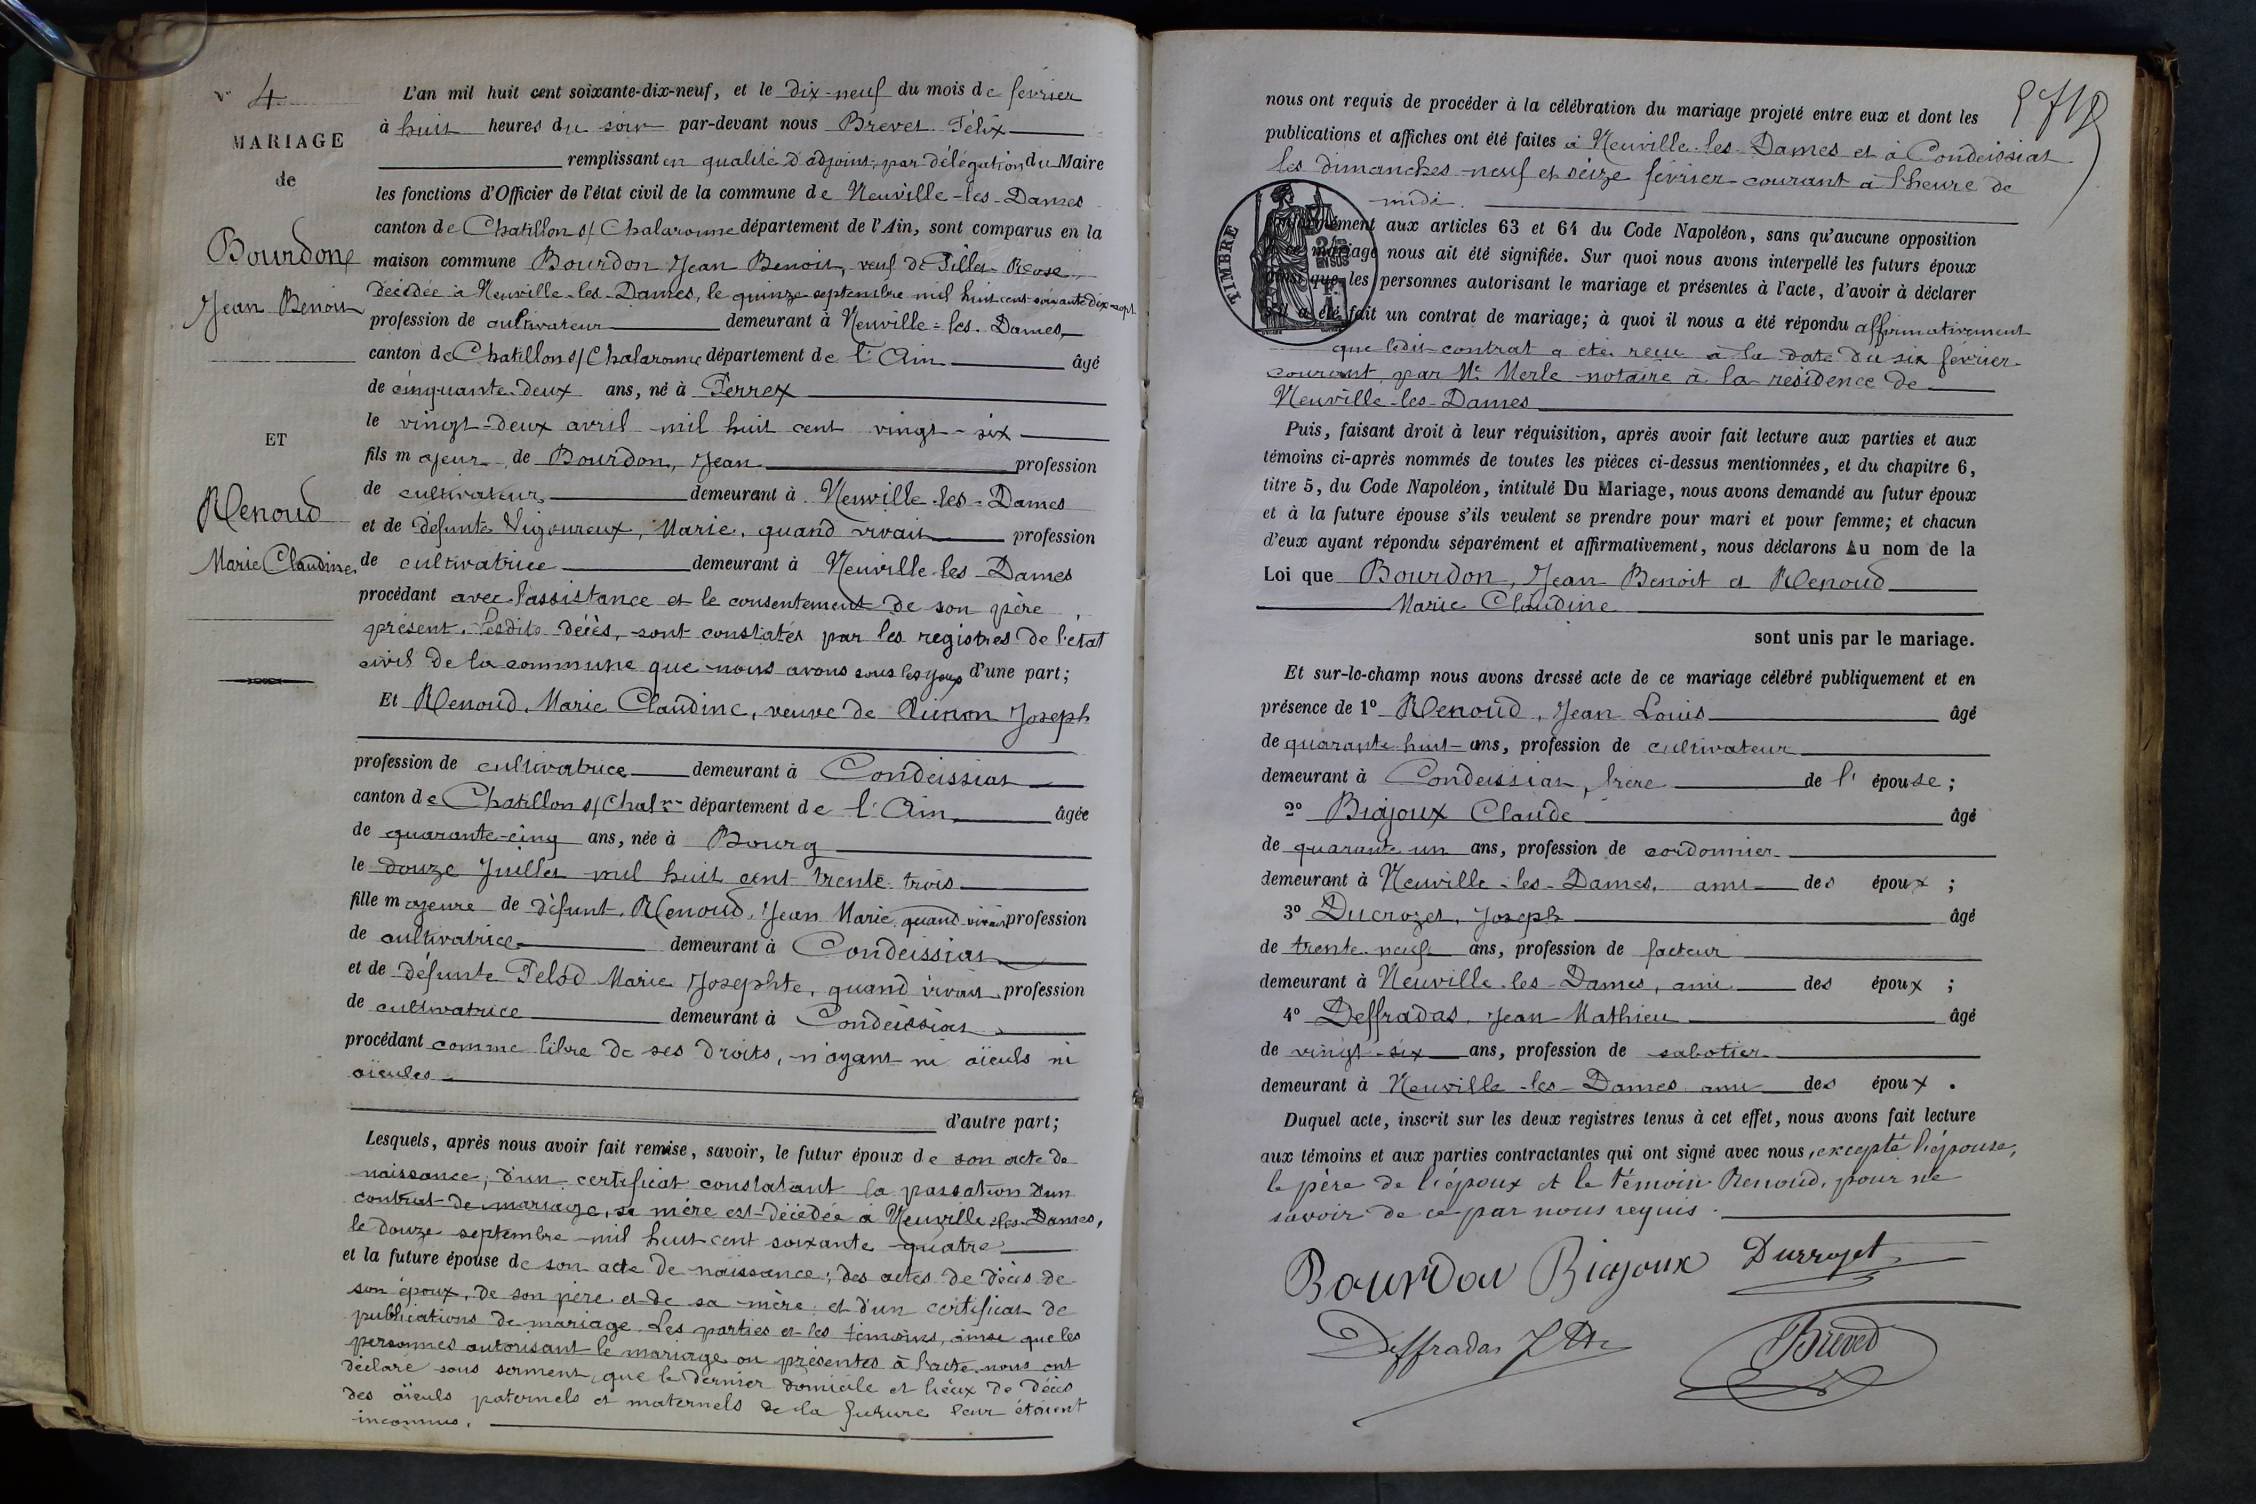 N° 4
MARIAGE
de
Bourdon
Jean Benoit
ET
Renoud
Marie Claudine
L'an mil huit cent soixante-dix-neuf, et le dix-neuf du mois de février
à huit heures du soir par-devant nous Brevet Félix
remplissant en qualité d'adjoint, par délégation du Maire
les fonctions d'Officier de l'état civil de la commune de Neuville-les-Dames
canton de Chatillon s/ Chalaronne département de l'Ain, sont comparus en la
maison commune Bourdon Jean Benoit, veuf de Pillet Rose
décédée à Neuville-les-Dames, le quinze septembre mil huit cent soixante dix-sept
profession de cultivateur demeurant à Neuville-les-Dames,
canton de Chatillon s/ Chalaronne département de l'Ain âgé
de cinquante-deux ans, né à Perrex
le vingt-deux avril mil huit cent vingt-six
fils majeur de Bourdon, Jean profession
de cultivateur, demeurant à Neuville-les-Dames
et de défunte Vigoureux, Marie, quand vivait profession
de cultivatrice demeurant à Neuville-les-Dames
procédant avec l'assistance et le consentement de son père
présent. Lesdits décès, sont constatés par les registres de l'état
civil de la commune que nous avons sous les yeux d'une part;
Et Renoud, Marie Claudine, veuve de Joseph
profession de cultivatrice demeurant à Condeissiat
canton de Chatillon s/ Chalnne département de l'Ain, âgée
de quarante-cinq ans, née à Bourg
le douze Juillet mil huit cent trente trois
fille majeure de défunt, Renoud, Jean Marie quand vivait profession
de cultivatrice demeurant à Condeissiat
et de défunte Pelod Marie Josephte, quand vivait profession
de cultivatrice demeurant à Condeissiat
procédant comme libre de ses droits, n'ayant ni aïeuls ni
aïeules
d'autre part;
Lesquels, après nous avoir fait remise, savoir, le futur époux de son acte de
naissance; d'un certificat constatant la passation d'un
contrat de mariage, sa mère est décédée à Neuville-les-Dames,
le douze septembre mil huit cent soixante quatre
et la future épouse de son acte de naissance; des actes de décès de
son époux, de son père et de sa mère et d'un certificat de
publications de mariage. Les parties et les témoins, ainsi que les
personnes autorisant le mariage ou présentes à l'acte nous ont
déclaré sous serment, que le dernier domicile et lieux de décès
des aïeuls paternels et maternels de la future leur étaient
inconnus.
nous ont requis de procéder à la célébration du mariage projeté entre eux et dont les
publications et affiches ont été faites à Neuville-les-Dames et à Condeissiat
les dimanches neuf et seize février courant à l'heure de
midi.
TIMBRE
conformément aux articles 63 et 64 du Code Napoléon, sans qu'aucune opposition
à ce mariage nous ait été signifiée. Sur quoi nous avons interpellé les futurs époux
ainsi que les personnes autorisant le mariage et présentes à l'acte, d'avoir à déclarer
s'il a été fait un contrat de mariage; à quoi il nous a été répondu affirmativement
que ledit contrat a été reçu à la date du six février
courant par Me Merle notaire à la résidence de
Neuville-les-Dames
Puis, faisant droit à leur réquisition, après avoir fait lecture aux parties et aux
témoins ci-après nommés de toutes les pièces ci-dessus mentionnées, et du chapitre 6,
titre 5, du Code Napoléon, intitulé Du Mariage, nous avons demandé au futur époux
et à la future épouse s'ils veulent se prendre pour mari et pour femme; et chacun
d'eux ayant répondu séparément et affirmativement, nous déclarons Au nom de la
Loi que Bourdon, Jean Benoit et Renoud
Marie Claudine
sont unis par le mariage.
Et sur-le-champ nous avons dressé acte de ce mariage célébré publiquement et en
présence de 1° Renoud, Jean Louis âgé
de quarante huit ans, profession de cultivateur
demeurant à Condeissiat, frère de l' épouse;
2° Biajoux Claude âgé
de quarante un ans, profession de cordonnier
demeurant à Neuville-les-Dames, ami des époux;
3° Ducrozet, Joseph âgé
de trente neuf ans, profession de facteur
demeurant à Neuville-les-Dames, ami des époux;
4° Deffradas, Jean Mathieu âgé
de vingt-six ans, profession de sabotier
demeurant à Neuville-les-Dames ami des époux.
Duquel acte, inscrit sur les deux registres tenus à cet effet, nous avons fait lecture
aux témoins et aux parties contractantes qui ont signé avec nous, excepté l'épouse,
le père de l'époux et le témoin Renoud, pour ne
savoir de ce par nous requis.
Bourdon Biajoux Ducrozet
Deffradas Brevet